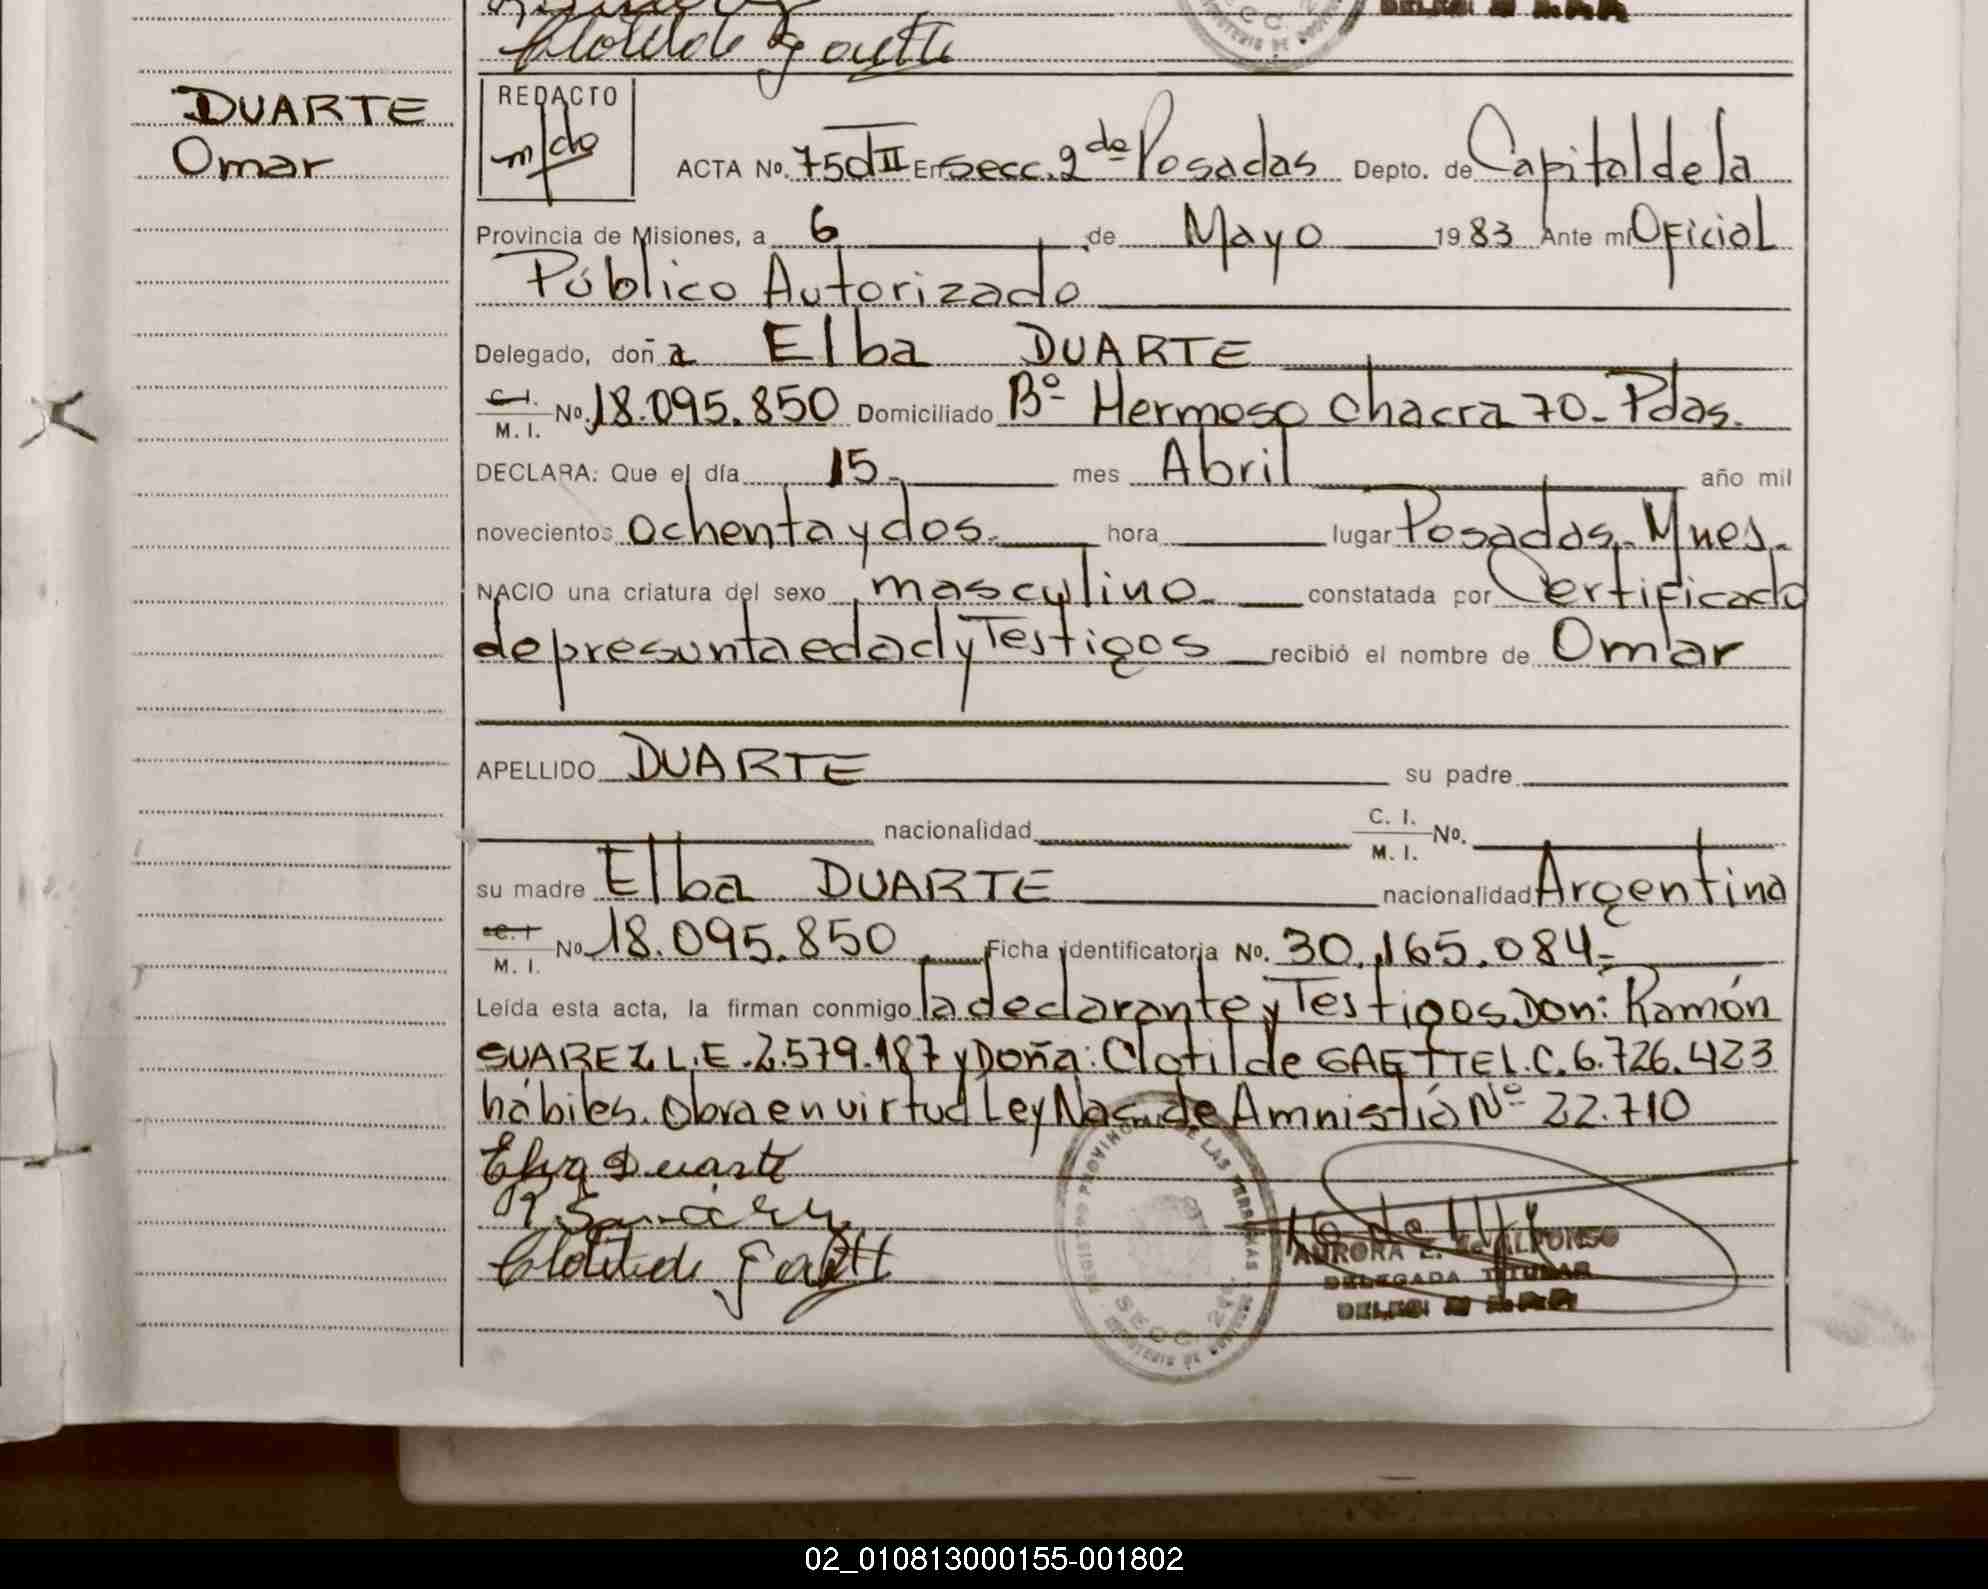 Clotilde Gaette
DUARTE
Omar
REDACTO
m/do
ACTA No. 750 T II En Secc. 2da Posadas Depto. de Capital de la
Provincia de Misiones, a 6 de Mayo 1983 Ante mi Oficial
Público Autorizado
Delegado, doña Elba DUARTE
C. I. M. I. No. 18.095.850 Domiciliado Bº Hermoso Chacra 70_ Pdas.
DECLARA: Que el día 15_ mes Abril año mil
novecientos ochenta y dos_ hora lugar Posadas_ Mnes_
NACIO una criatura del sexo masculino_ constatada por Certificado
de presunta edad y Testigos recibió el nombre de Omar
APELLIDO DUARTE su padre
nacionalidad C. I. M. I. No.
su madre Elba DUARTE nacionalidad Argentina
C. I M. I. No 18.095.850 Ficha identificatoria No. 30.165.084_
Leída esta acta, la firman conmigo la declarante y Testigos Don: Ramón
SUAREZ L.E. 2.579.187 y Doña: Clotilde GAETTE L.C. 6.726.423
hábiles. Obra en virtud Ley Nac. de Amnistía Nº 22.710
Elva Duarte
R Suarez
Clotilde Gaett
PROVINCIAL DE LAS PERSONAS
SECC. 2da
MINISTERIO DE GOBIERNO
AURORA E. de ALFONSO
DELEGADA TITULAR
02_010813000155-001802